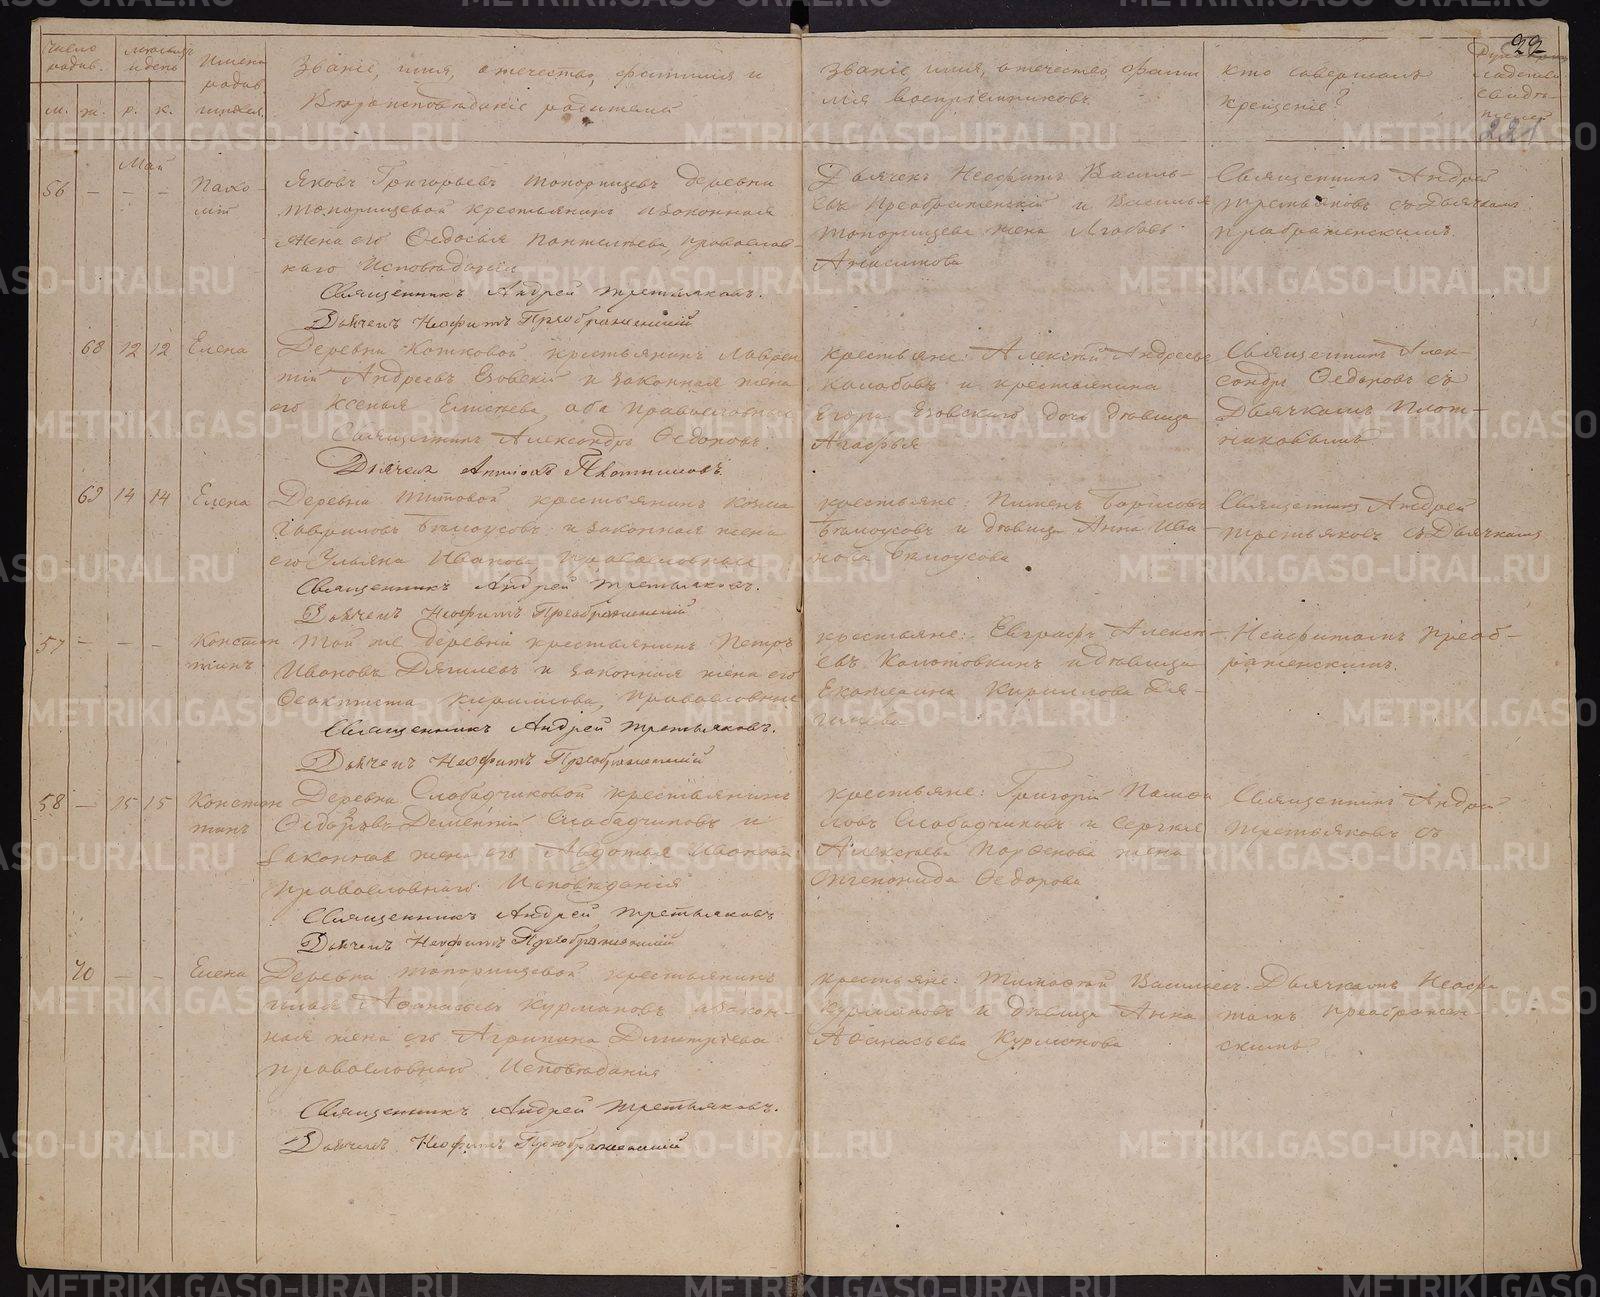 22
221
Число родив.
Месяцъ и день
Имена родив
шихся.
м. ж. р. к.
Званіе, имя, отчество, фамилія и
Вѣроисповѣданіе родителей
Званіе, имя, отчество, фами
лія воспріемниковъ.
Кто совершалъ
крещеніе?
Май
56 — — —
Пахо-
мій
Яковъ Григорьевъ Топорищевъ деревни
Топорищевой крестьянинъ и законная
жена его Ѳедосья Пантелѣева, православ-
наго Исповѣданія
Священникъ Андрей Третьяковъ.
Дьячекъ Неофитъ Преображенскій
Дьячекъ Неофитъ Василь-
евъ Преображенскій и Василья
Топорищева жена Любовь
Анисимова
Священникъ Андрей
Третьяковъ съ Дьячкомъ
Преображенскимъ.
68 12 12 Елена
Деревни Кошковой крестьянинъ Лаврен
тій Андреевъ Езовскій и законная жена
его Ксенья Елисеева, оба православные
Священникъ Александръ Ѳедоровъ.
Дьячекъ Антіохъ Плотниковъ.
крестьяне: Алексѣй Андреевъ
Колобовъ и крестьянина
Егора Езовскаго дочь дѣвица
Агафья
Священникъ Алек-
сандръ Ѳедоровъ съ
Дьячкомъ Плот-
никовымъ
69 14 14 Елена
Деревни Титовой крестьянинъ Козма
Гавриловъ Бѣлоусовъ и законная жена
его Ульяна Иванова, православные
Священникъ Андрей Третьяковъ.
Дьячекъ Неофитъ Преображенскій
крестьяне: Пименъ Борисовъ
Бѣлоусовъ и дѣвица Анна Ива
нова Бѣлоусова
Священникъ Андрей
Третьяковъ съ Дьячкомъ
57 — — —
Констан
тинъ
Той же деревни крестьянинъ Петръ
Ивановъ Дягилевъ и законная жена его
Ѳеоктиста Кирилова, православные
Священникъ Андрей Третьяковъ.
Дьячекъ Неофитъ Преображенскій
крестьяне: Евграфъ Алексѣ-
евъ Колотовкинъ и дѣвица
Екатерина Кириллова Дя-
гилева
Неофитомъ Преоб-
раженскимъ.
58 — 15 15
Констан
тинъ
Деревни Слободчиковой крестьянинъ
Ѳедоровъ Дементій Слободчиковъ и
законная жена его Авдотья Иванова
православнаго Исповѣданія
Священникъ Андрей Третьяковъ
Дьячекъ Неофитъ Преображенскій
крестьяне: Григорій
Слободчиковъ и Сергѣя
Алексѣева Парѳенова жена
Ѳедорова
Священникъ Андрей
Третьяковъ съ
70 — — Елена
Деревни Топорищевой крестьянинъ
Аѳанасьевъ Курмановъ и закон-
ная жена его Агрипина Дмитріева
православнаго Исповѣданія
Священникъ Андрей Третьяковъ.
Дьячекъ Неофитъ Преображенскій
крестьяне: Тимофей Васильевъ
Курмановъ и дѣвица Анна
Аѳанасьева Курманова
Дьячкомъ Неофи
томъ Преображен-
скимъ
METRIKI.GASO-URAL.RU